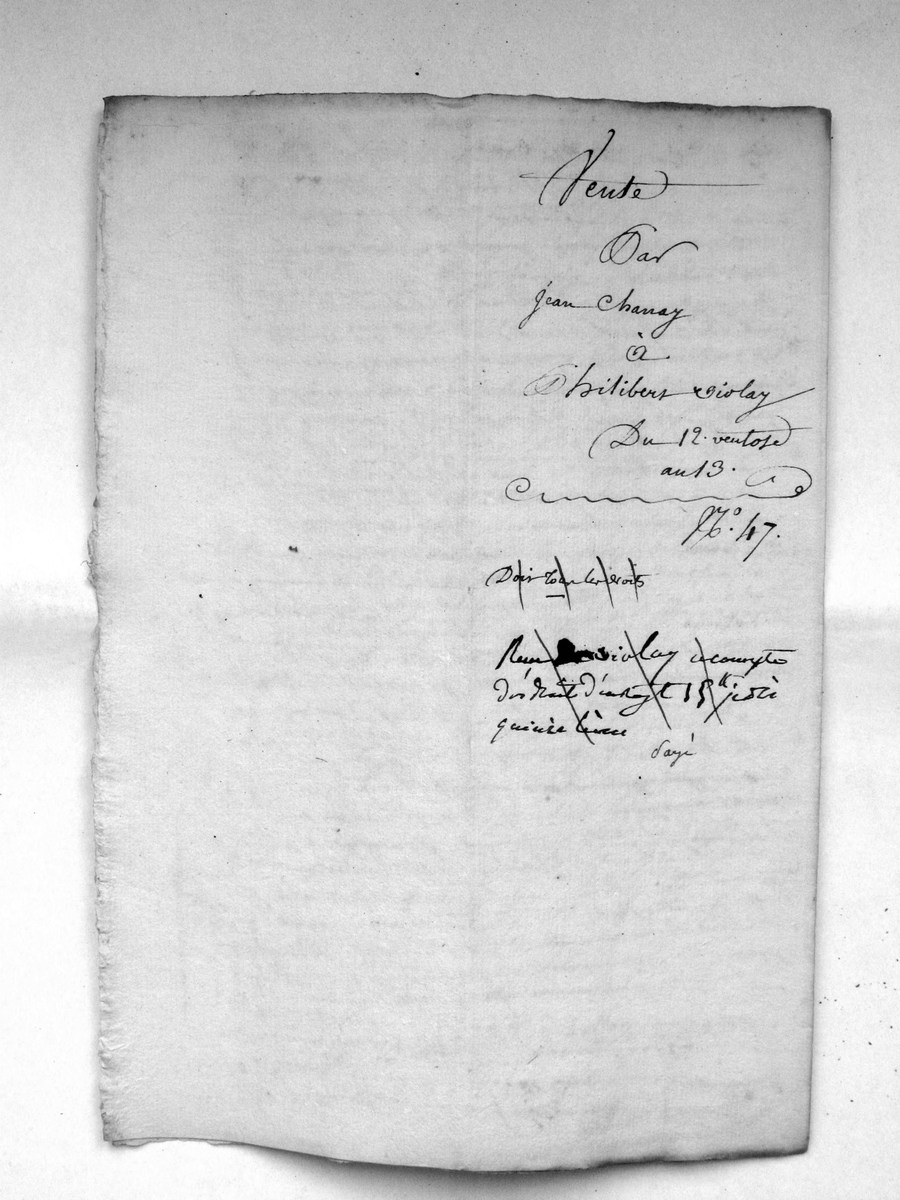 Vente
Par
jean Chanay
à
Philibert violay
Du 12. ventose
au 13.
N.° 47.
Dois tous les droits
Reçu violay acompte
des droits d'enregt 15 tt je dis
quinze livres
payé